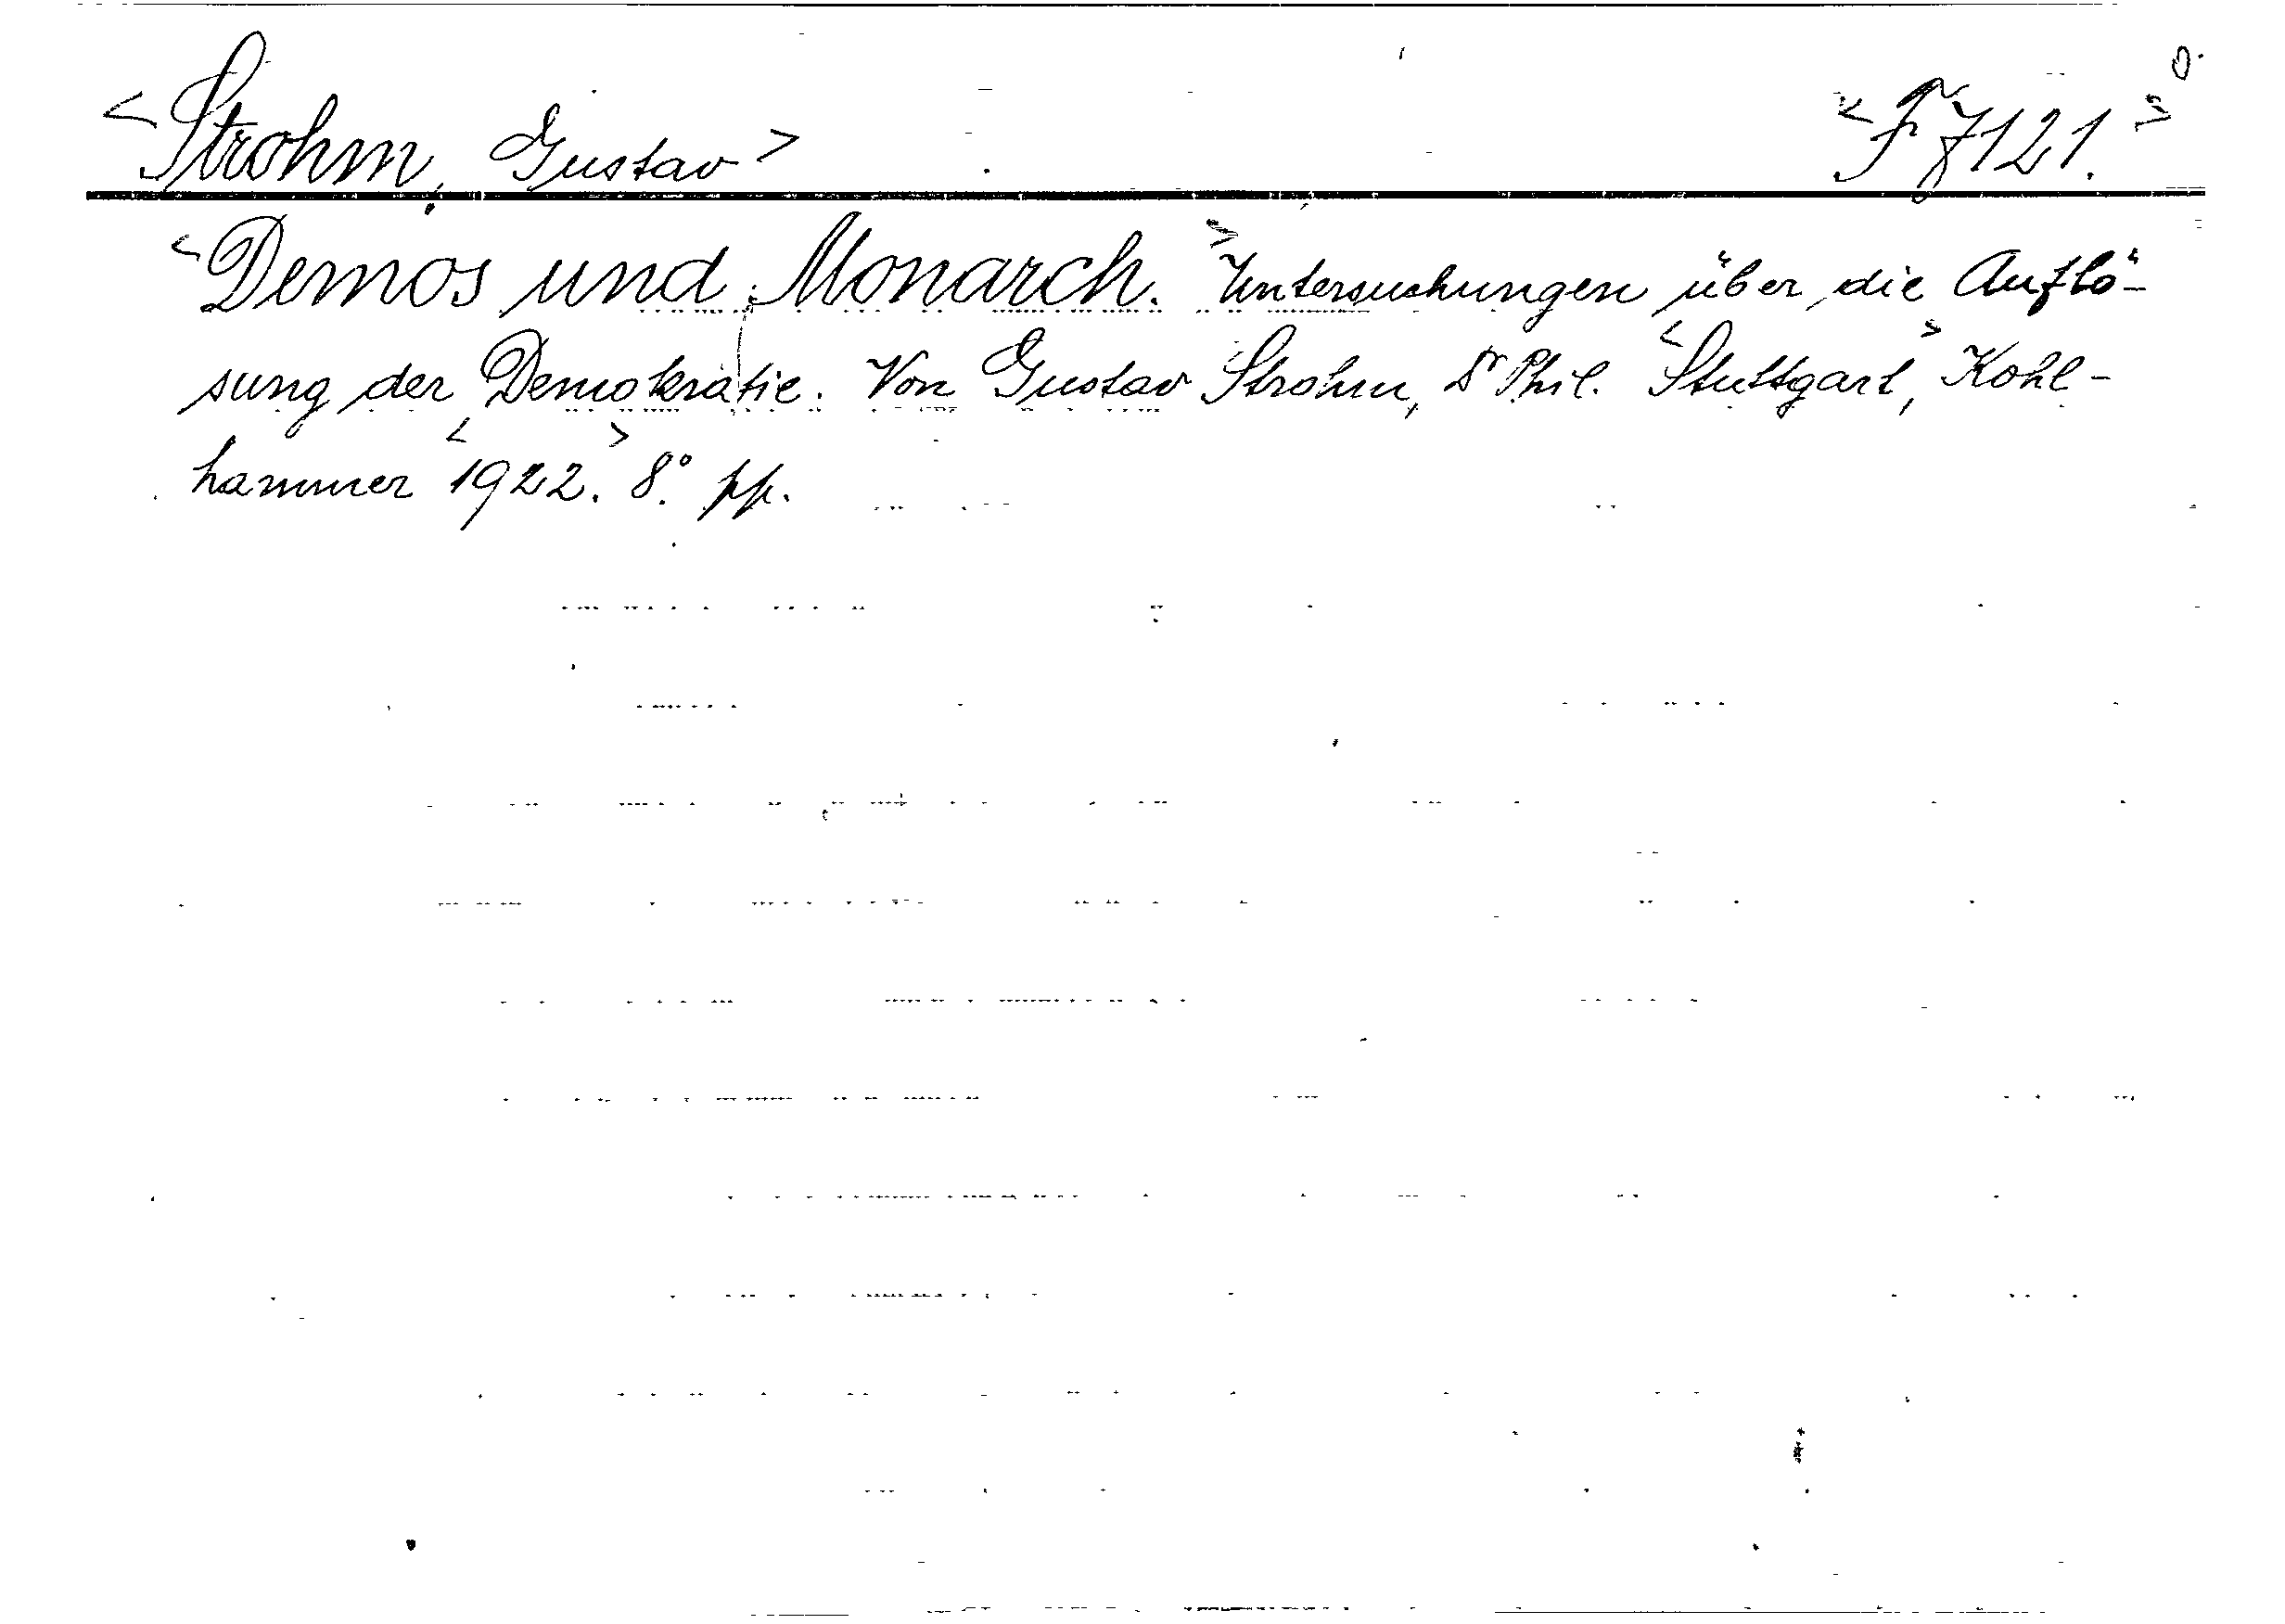 <Strohm, Gustav> <F 7121.> O.
<Demos und Monarch.> Untersuchungen über die Auflö-
sung der Demokratie. Von Gustav Strohm, Dr Phil. <Stuttgart,> Kohl-
hammer <1922.> 8.° pp.